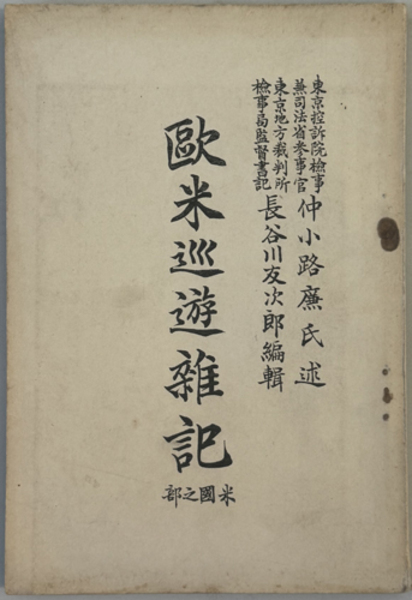 東京控訴院檢事
兼司法省參事官
仲小路廉氏述
東京地方裁判所
檢事局監督書記
長谷川友次郎編輯
歐米巡遊雜記
米國之部